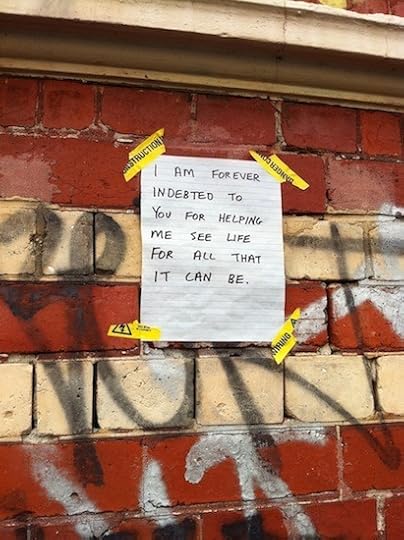 I AM FOREVER
INDEBTED TO
YOU FOR HELPING
ME SEE LIFE
FOR ALL THAT
IT CAN BE.